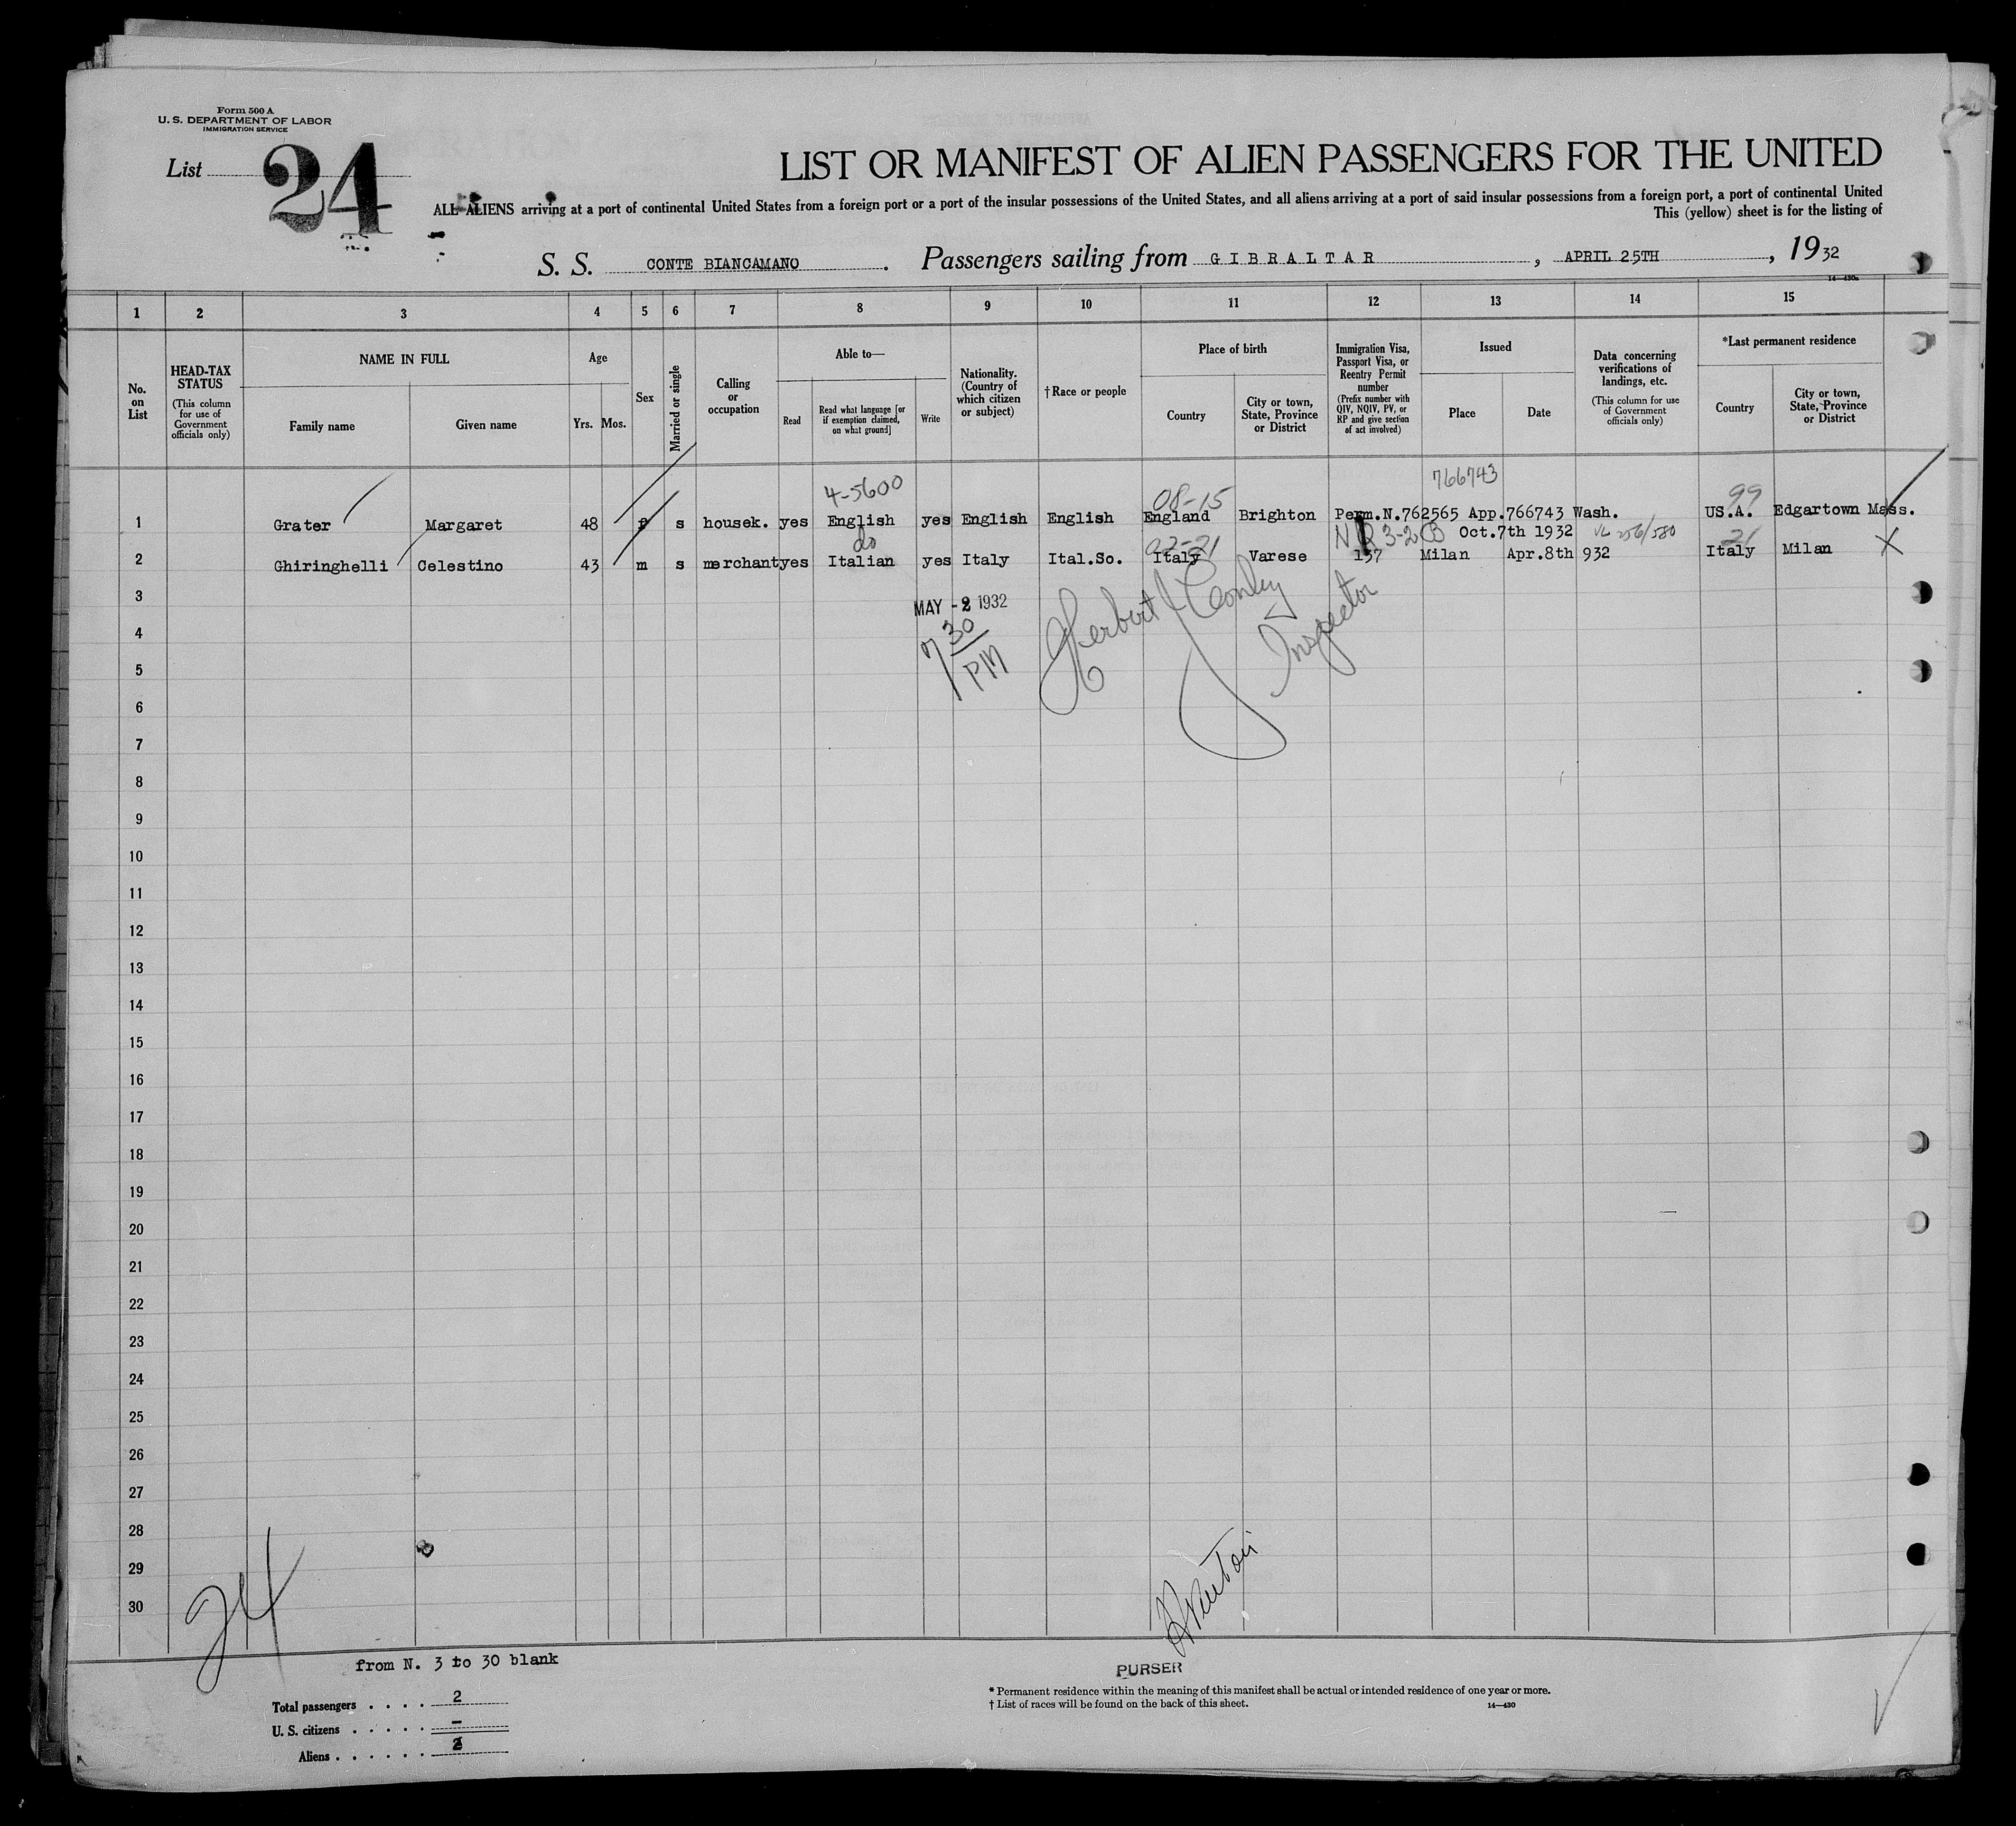 Form 500 A
U. S. DEPARTMENT OF LABOR
IMMIGRATION SERVICE
List 24
LIST OR MANIFEST OF ALIEN PASSENGERS FOR THE UNITED
ALL ALIENS arriving at a port of continental United States from a foreign port or a port of the insular possessions of the United States, and all aliens arriving at a port of said insular possessions from a foreign port, a port of continental United
This (yellow) sheet is for the listing of
S. S. CONTE BIANCAMANO. Passengers sailing from GIBRALTAR, APRIL 25TH, 1932
14—430a
1 2 3 4 5 6 7 8 9 10 11 12 13 14 15
No. on List
HEAD-TAX STATUS
(This column for use of Government officials only)
NAME IN FULL
Family name
Given name
Age
Yrs. Mos.
Sex
Married or single
Calling or occupation
Able to—
Read
Read what language [or if exemption claimed, on what ground]
Write
Nationality. (Country of which citizen or subject)
†Race or people
Place of birth
Country
City or town, State, Province or District
Immigration Visa, Passport Visa, or Reentry Permit number
(Prefix number with QIV, NQIV, PV, or RP and give section of act involved)
Issued
Place
Date
Data concerning verifications of landings, etc.
(This column for use of Government officials only)
*Last permanent residence
Country
City or town, State, Province or District
4-5600 08-15 766743 99
1 Grater Margaret 48 f s housek. yes English yes English English England Brighton Perm.N.762565 App.766743 Wash. US.A. Edgartown Mass.
do 02-21 3-2 Oct.7th 1932 21
2 Ghiringhelli Celestino 43 m s merchant yes Italian yes Italy Ital.So. Italy Varese 157 Milan Apr.8th 932 Italy Milan X
3
MAY - 2 1932
7 30 PM
Herbert J Conley
Inspector
4
5
6
7
8
9
10
11
12
13
14
15
16
17
18
19
20
21
22
23
24
25
26
27
28
29
30
24
from N. 3 to 30 blank
PURSER
Total passengers . . . . 2
U. S. citizens . . . . . -
Aliens . . . . . . 2
* Permanent residence within the meaning of this manifest shall be actual or intended residence of one year or more.
† List of races will be found on the back of this sheet.
14—430